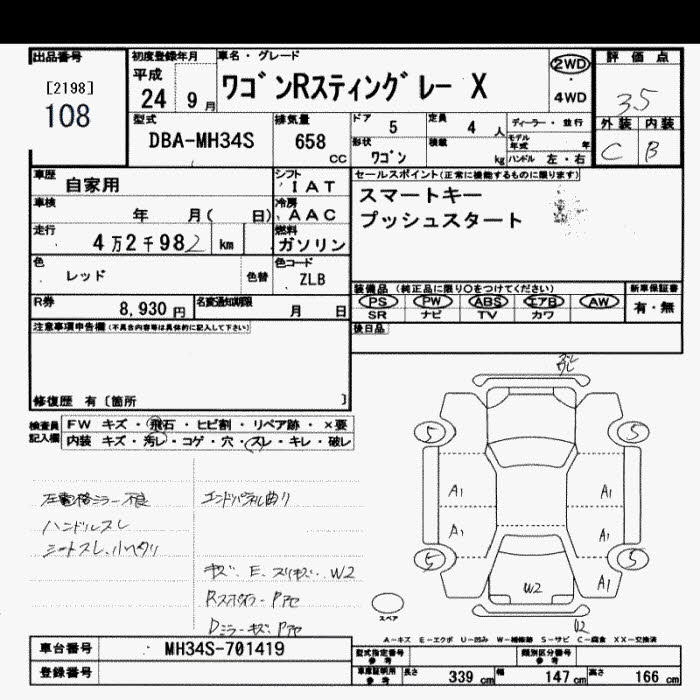 出品番号
[2198]
108
初度登録年月
平成
24 9月
車名・グレード
ワゴンRスティングレー X
2WD
・
4WD
評価点
3.5
外装 内装
C B
型式
DBA-MH34S
排気量
658
cc
ドア 5
定員 4 人
形状 ワゴン
積載 kg
ディーラー・並行
モデル年式 年
ハンドル 左・右
車歴 自家用
シフト
IAT
車検 年 月( 日)
冷房
AAC
走行 4万2千982 km
燃料
ガソリン
色 レッド 色替
色コード
ZLB
R券 8,930円
名変通知期限 月 日
セールスポイント(正常に機能するものに限ります)
スマートキー
プッシュスタート
装備品 (純正品に限り○をつけてください)
PS PW ABS エアB AW
SR ナビ TV カワ
新車保証書
有・無
後日品
注意事項申告欄(不具合内容等は具体的に記入して下さい)
修復歴 有〔箇所 〕
検査員記入欄
FW キズ・飛石・ヒビ割・リペア跡・×要
内装 キズ・汚レ・コゲ・穴・スレ・キレ・破レ
左電格ミラー不良
ハンドルスレ
シートスレ、小ヘタリ
エンドパネル曲り
キズ、E、スリキズ、W2
5 5
A1 A1
A1 A1
5 5
A1
W2
U2
スペア
A-キズ E-エクボ U-凹み W-補修跡 S-サビ C-腐食 XX-交換済
車台番号 MH34S-701419
登録番号
型式指定番号 参考
類別区分番号 参考
車庫証明用 参考
長さ 339 cm 幅 147 cm 高さ 166 cm